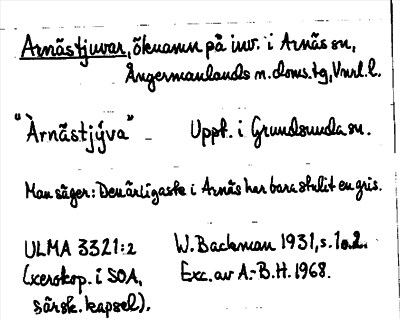 Arnästjuvar, öknamn på inv. i Arnäs sn,
Ångermanlands n. doms. tg, Vnrl. l.
"Àrnästjýva" Uppt. i Grundsunda sn.
Man säger: Den ärligaste i Arnäs har bara stulit en gris.
ULMA 3321:2 W. Backman 1931, s. 1 o. 2.
(xerokop. i SOA, Exc. av A.-B. H. 1968.
särsk. kapsel).